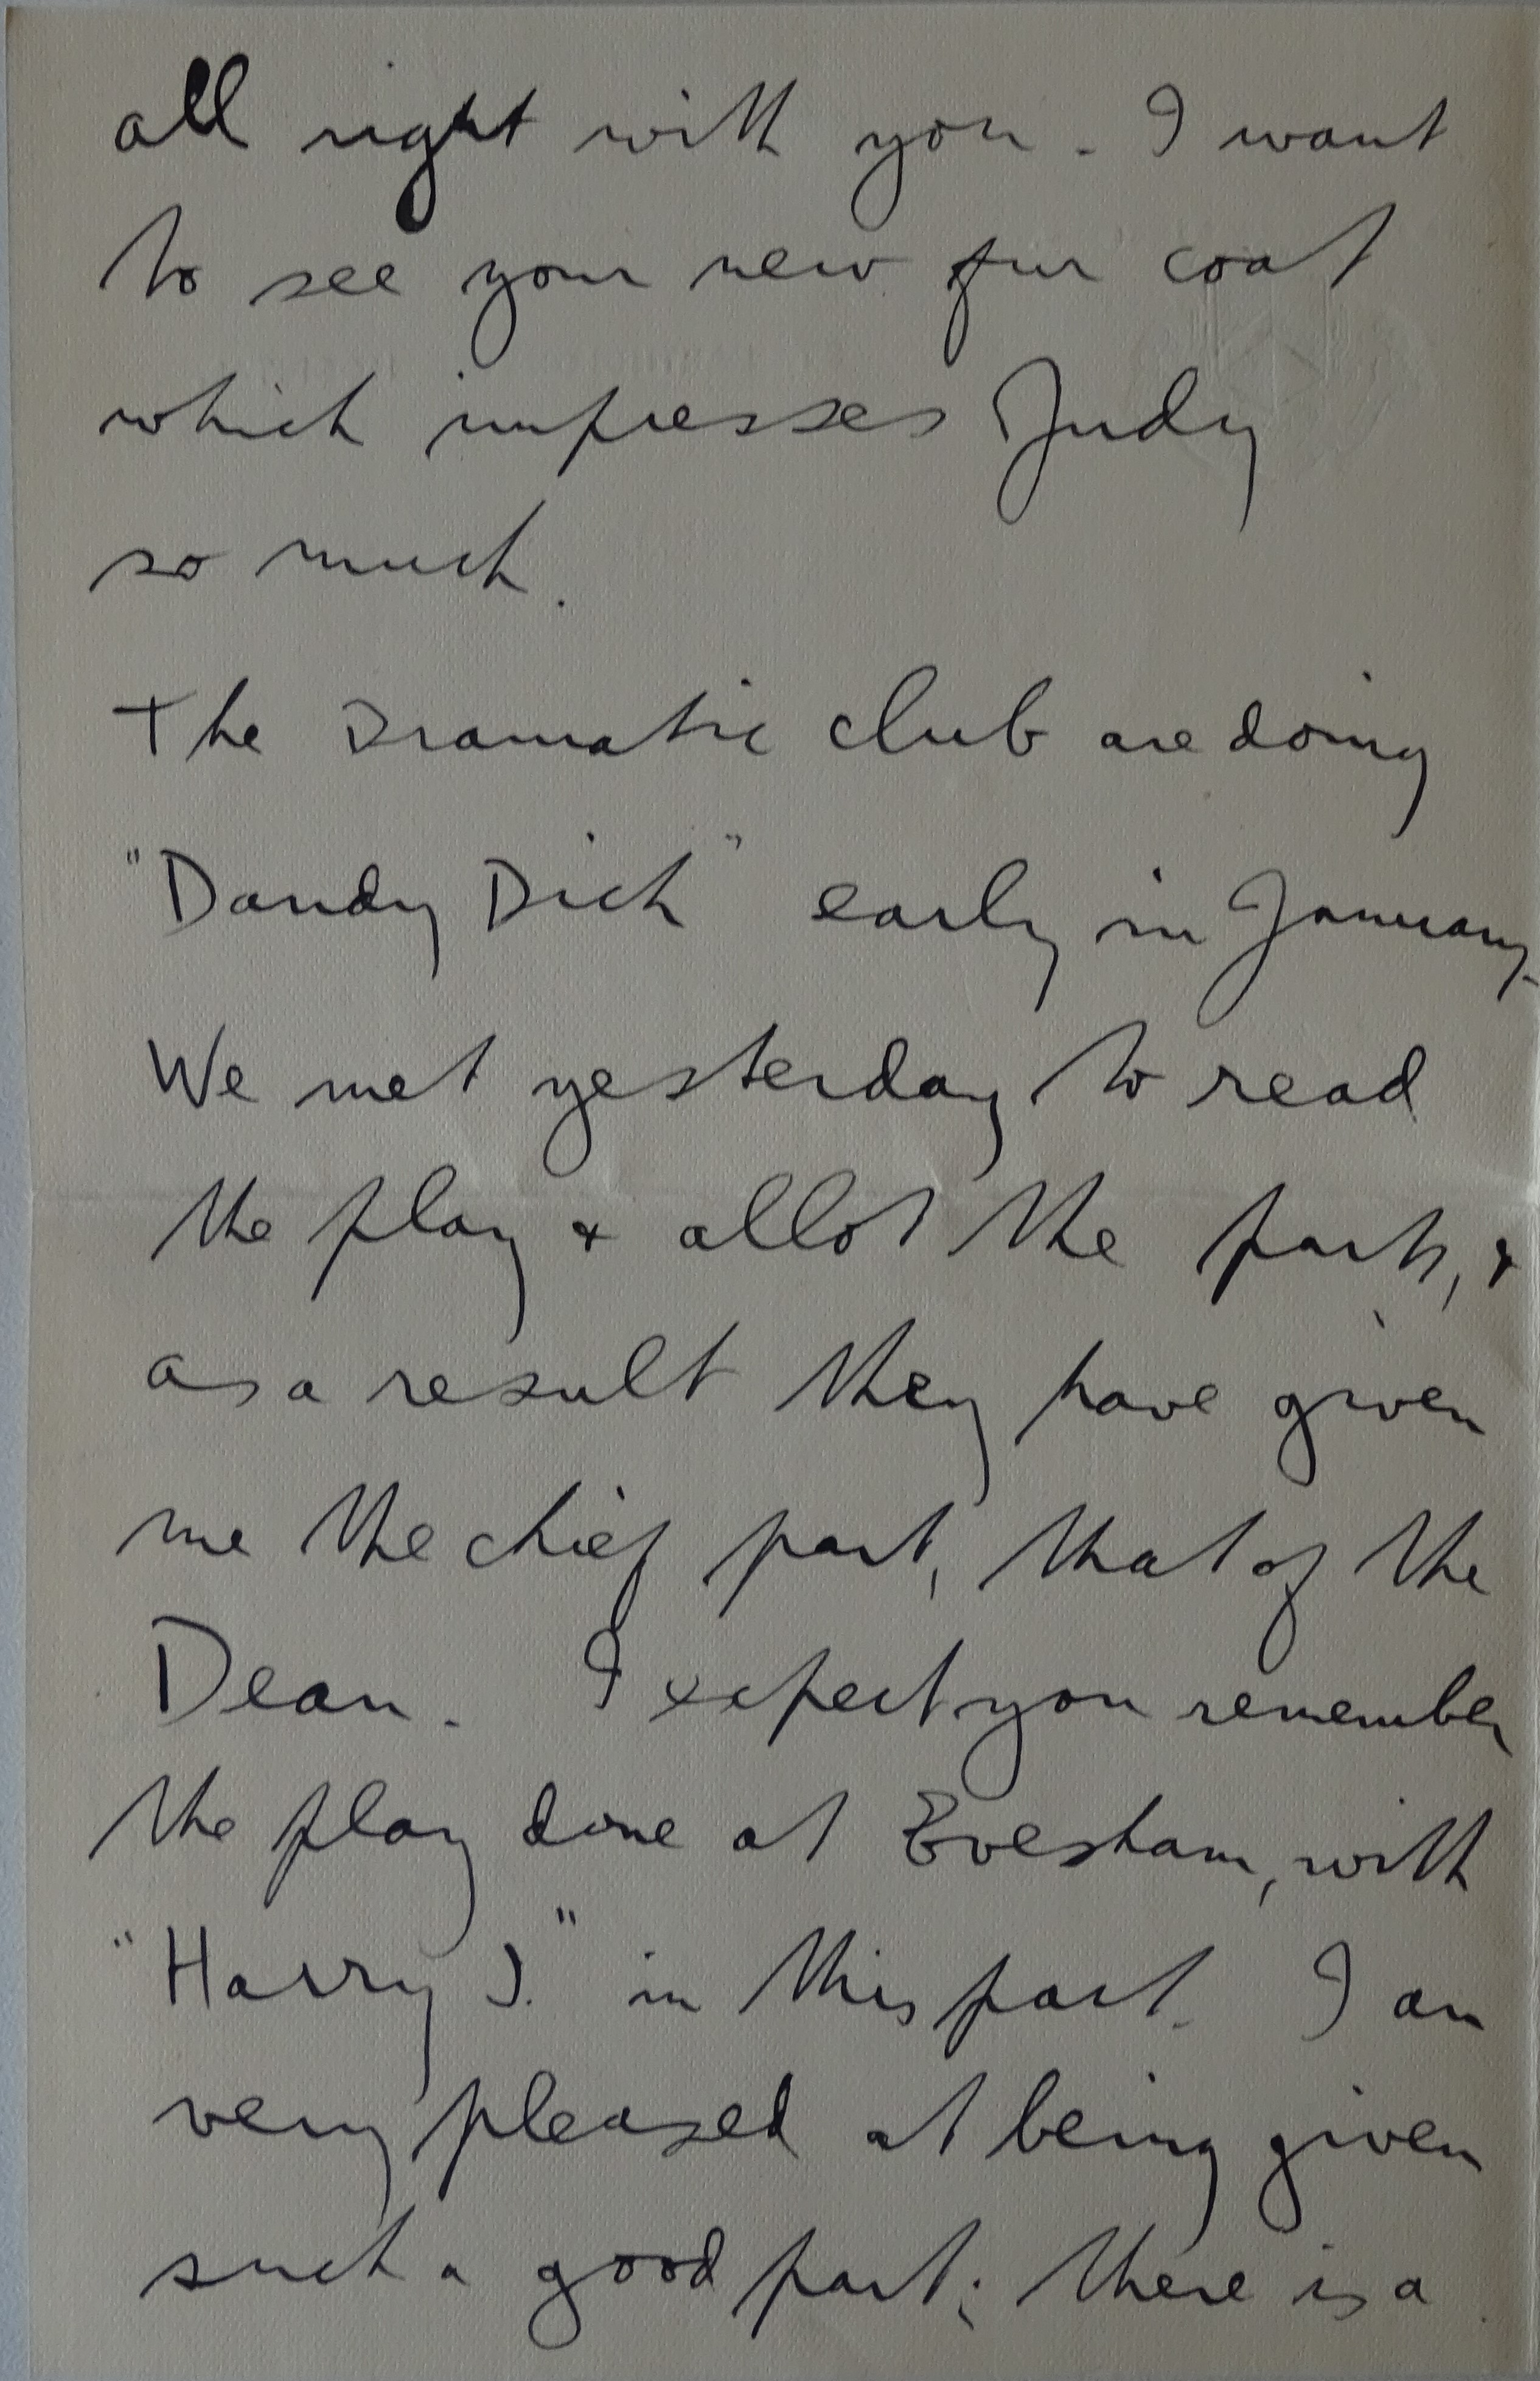 all right with you. I want
to see your new fur coat
which impresses Judy
so much.
The Dramatic club are doing
"Dandy Dick" early in January.
We met yesterday to read
the play & allot the parts, &
as a result they have given
me the chief part, that of the
Dean. I expect you remember
the play done at Evesham, with
"Harry J." in this part. I am
very pleased at being given
such a good part; there is a